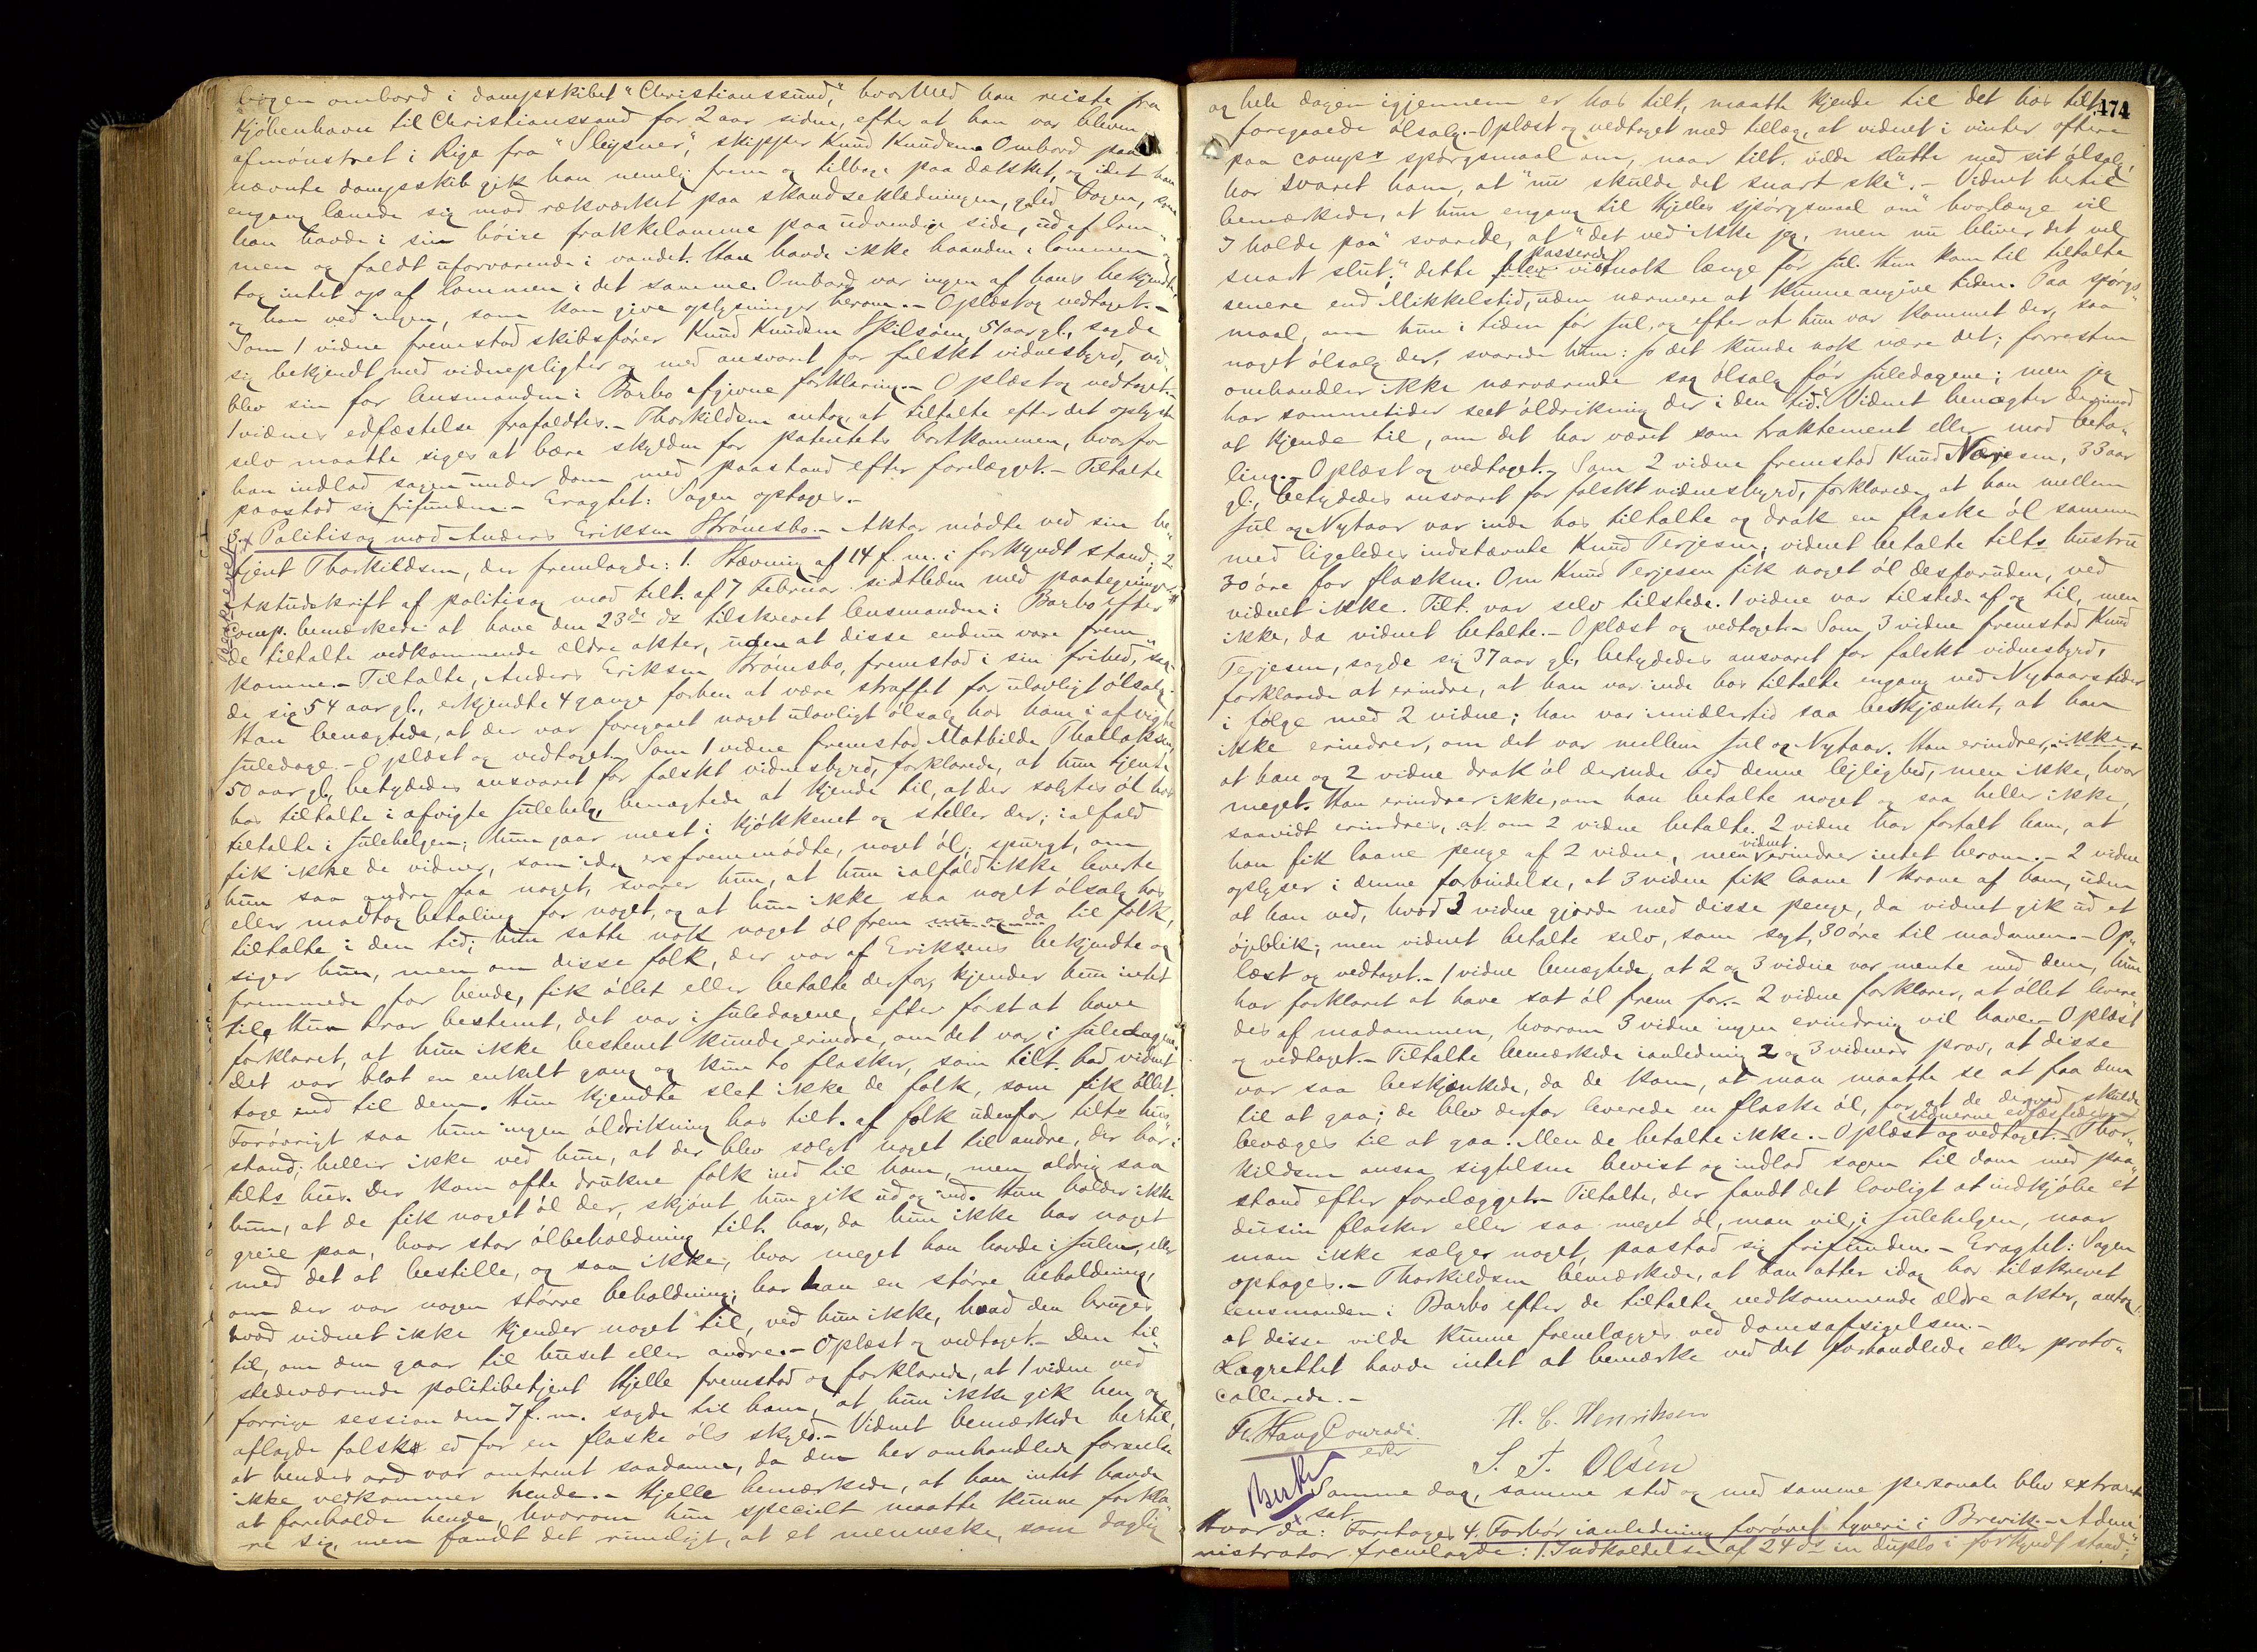 bogen ombord i dampskibet "Christianssund," hvormed han reiste fra
Kjöbenhavn til Christianssand for 2 aar siden, efter at han var bleven
afmönstret i Riga fra "Sleipner", skipper Knud Knudsen. Ombord paa
nævnte dampskib gik han nemlig frem og tilbage paa dækket, og idet han
engang lænede sig mod rækværket paa skandseklædningen, gled bogen, som
han havde i sin höire frakkelomme paa udvendige side, ud af lom-
men og faldt uforvarende i vandet. Han havde ikke haanden i lommen og
tog intet op af lommen i det samme. Ombord var ingen af hans bekjendte,
og han ved ingen, som kan give oplysninger herom. - Oplæst og vedtaget. -
Som 1 vidne fremstod skibsförer Knud Knudsen Hkilsöen, 51 aar gl., sagde
sig bekjendt med vidnepligter og med ansvaret for falskt vidnesbyrd, ved-
blev sin for lensmanden i Barbo afgivne forklaring. - Oplæst og vedtaget. -
1 vidnes edfæstelse frafaldtes. - Thorkildsen antog, at tiltalte efter det oplyste
selv maatte siges at bære skylden for patentets bortkommen, hvorfor
han indlod sagen under dom med paastand efter forelægget. - Tiltalte
paastod sig frifunden. - Eragtet: Sagen optages. -
3. Politisag mod Anders Eriksen Strömsbo. - Aktor mödte ved sin be-
tjent Thorkildsen, der fremlagde: 1. Stævning af 14 f. m. i forkyndt stand; 2.
Aktudskrift af politisag mod tilt. af 7 Februar sidstleden med paategninger
Comp. bemærkede at have den 23de ds tilskrevet lensmanden i Barbo efter
de tiltalte vedkommende ældre akter, uden at disse endnu vare frem-
komne. - Tiltalte, Anders Eriksen Strömsbo, fremstod i sin frihed, sag-
de sig 54 aar gl., erkjendte 4 gange forhen at være straffet for ulovligt ölsalg.
Han benægtede, at der var foregaaet noget ulovligt ölsalg hos ham i afvigte
Juledage. - Oplæst og vedtaget. Som 1 vidne fremstod Mathilde Thallaksen,
50 aar gl., betydedes ansvaret for falskt vidnesbyrd, forklarede, at hun tjente
hos tiltalte i afvigte Julehelg, benægtede at kjende til, at der solgtes öl hos
tiltalte i Julehelgen; hun gaar mest i kjökkenet og steller der; ialfald
fik ikke de vidner, som idag er fremmödte, noget öl; spurgt, om
hun saa andre faa noget, svarer hun, at hun ialfald ikke leverte
eller modtog betaling for noget, og at hun ikke saa noget ölsalg hos
tiltalte i den tid; hun satte nok noget öl frem nu og da til folk,
siger hun, men om disse folk, der var af Eriksens bekjendte og
fremmede for hende, fik öllet eller betalte derfor, kjender hun intet
til. Hun tror bestemt, det var i Juledagene, efter först at have
forklaret, at hun ikke bestemt kunde erindre, om det var i Juledagene.
Det var blot en enkelt gang og kun to flasker, som tilt. bad vidnet
tage ind til dem. Hun kjendte slet ikke de folk, som fik öllet.
Forövrigt saa hun ingen öldrikning hos tilt. af folk udenfor tilts hus-
stand; heller ikke ved hun, at der blev solgt noget til andre, der bor i
tilts hus. Der kom ofte drukne folk ind til ham, men aldrig saa
hun, at de fik noget öl der, skjönt hun gik ud og ind. Hun holder ikke
greie paa, hvor stor ölbeholdning tilt. har, da hun ikke har noget
med det at bestille, og saa ikke, hvor meget han havde i Julen, eller
om der var nogen större beholdning; har han en större beholdning,
hvad vidnet ikke kjender noget til, ved hun ikke, hvad den bruges
til, om den gaar til huset eller andre. - Oplæst og vedtaget. - Den til-
stedeværende politibetjent Hjelle fremstod og forklarede, at 1 vidne ved
forrige session den 7 f. m. sagde til ham, at hun ikke gik hen og
aflagde falsk ed for en flaske öls skyld. - Vidnet bemærkede hertil,
at hendes ord var omtrent saadanne, da den her omhandlede forseelse
ikke vedkommer hende. - Hjelle bemærkede, at han intet havde
at foreholde hende, hvorom hun specielt maatte kunne forkla-
re sig, men fandt det rimeligt, at et menneske, som daglig
474
og hele dagen igjennem er hos tilt., maatte kjende til det hos tilt.
foregaaede ölsalg. - Oplæst og vedtaget med tillæg, at vidnet i vinter oftere
paa comps spörgsmaal om, naar tilt. vilde slutte med sit ölsalg,
har svaret ham, at "nu skulde det snart ske". - Vidnet hertil
bemærkede, at hun engang til Hjelles spörgsmaal om "hvorlænge vil
I holde paa" svarede, at "det ved ikke jeg, men nu bliver det vel
passerede
snart slut;" dette blev vistnok længe för Jul. Hun kom til tiltalte
senere end Mikkelstid, uden nærmere at kunne angive tiden. Paa spörgs-
maal, om hun i tiden för Jul, og efter at hun var kommet der, saa
noget ölsalg der, svarede hun: Jo det kunde nok være det; forresten
omhandler ikke nærværende sag ölsalg för Juledagene; men jeg
har sommetider seet öldrikning der i den tid. Vidnet benægter derimod
at kjende til, om det har været som traktement eller mod beta-
ling. - Oplæst og vedtaget. - Som 2 vidne fremstod Knud Nærjesen, 33 aar
gl., betydedes ansvaret for falskt vidnesbyrd, forklarede at han mellem
Jul og Nytaar var inde hos tiltalte og drak en flaske öl sammen
med ligeledes indstævnte Knud Terjesen; vidnet betalte tilts hustru
30 öre for flasken. Om Knud Terjesen fik noget öl desforuden, ved
vidnet ikke. Tilt. var selv tilstede. 1 vidne var tilstede af og til, men
ikke, da vidnet betalte. - Oplæst og vedtaget. - Som 3 vidne fremstod Knud
Terjesen, sagde sig 37 aar gl., betydedes ansvaret for falskt vidnesbyrd,
forklarede at erindre, at han var inde hos tiltalte engang ved Nytaarstider
i fölge med 2 vidne; han var imidlertid saa beskjænket, at han
ikke erindrer, om det var mellem Jul og Nytaar. Han erindrer ikke
at han og 2 vidne drak öl derinde ved denne leilighed, men ikke, hvor
meget. Han erindrer ikke, om han betalte noget og saa heller ikke,
saavidt erindres, at om 2 vidne betalte. 2 vidne har fortalt ham, at
vidnet
han fik laane penge af 2 vidne, men erindrer intet herom. - 2 vidne
oplyser i denne forbindelse, at 3 vidne fik laane 1 krone af ham, uden
at han ved, hvad 3 vidne gjorde med disse penge, da vidnet gik ud et
öjeblik; men vidnet betalte selv, som sagt, 30 öre til madamen. - Op-
læst og vedtaget. - 1 vidne benægtede, at 2 og 3 vidne var mente med dem, hun
har forklaret at have sat öl frem for. - 2 vidne forklarer, at öllet levere-
des af madammen, hvorom 3 vidne ingen erindring vil have. - Oplæst
og vedtaget. - Tiltalte bemærkede i anledning 2 og 3 vidners prov, at disse
var saa beskjænkede, da de kom, at man maatte se at faa dem
til at gaa; de blev derfor leverede en flaske öl, for at de derved skulde
vidnerne edfæstedes.
bevæges til at gaa. Men de betalte ikke. - Oplæst og vedtaget. - Thor-
kildsen ansaa sigtelsen bevist og indlod sagen til dom med paa-
stand efter forelægget. - Tiltalte, der fandt det lovligt at indkjöbe et
dusin flasker eller saa meget öl, man vil, i Julehelgen, naar
man ikke sælger noget, paastod sig frifunden. - Eragtet: Sagen
optages. - Thorkildsen bemærkede, at han atter idag har tilskrevet
lensmanden i Barbo efter de tiltalte vedkommende ældre akter, antog,
at disse vilde kunne fremlægges ved domsafsigelsen. -
Lagrettet havde intet at bemærke ved det forhandlede eller proto-
collerede. -
Fr. Haug Conradi.
H. C. Henriksen
S. T. Olsen
Samme dag, samme sted og med samme personale blev extraret
set.
Hvorda: Foretoges 4. Forhör i anledning forövet tyveri i Brevik. - Admi-
nistrator fremlagde: 1. Indkaldelse af 24 ds in duplo i forkyndt stand;